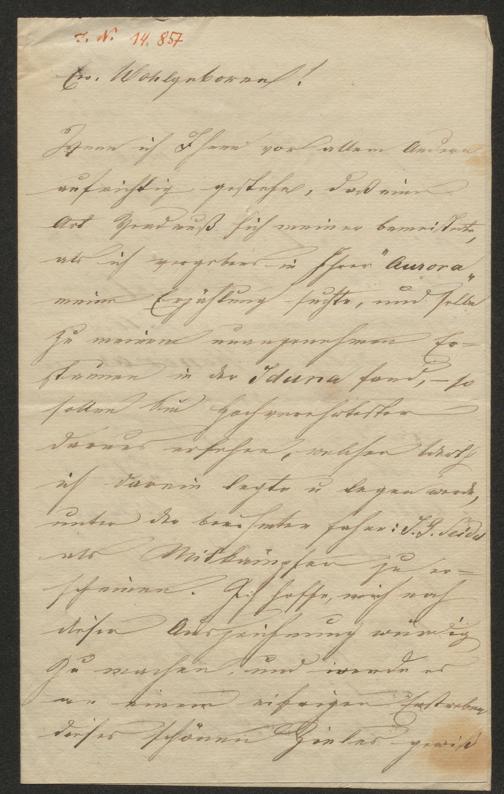 I. N. 14.857
Ew. Wohlgeboren!
Wenn ich Ihnen vor allem Andern
aufrichtig gestehe, daß eine
Art Verdruß sich meiner bemeisterte,
als ich vergebens in Ihrer "Aurora"
meine Erzählung suchte, und selbe
zu meinem unangenehmen Er=
staunen in der Iduna fand, – so
sollen Sie Hochverehrtester
daraus ersehen, welchen Werth
ich darein legte u legen werde,
unter der berühmten Fahne: J. G. Seidl
als Mitkämpfer zu er=
scheinen. Ich hoffe, mich noch
dieser Auszeichnung würdig
zu machen, und werde es
an einem eifrigen Erstreben
dieses schönen Zieles gewiß